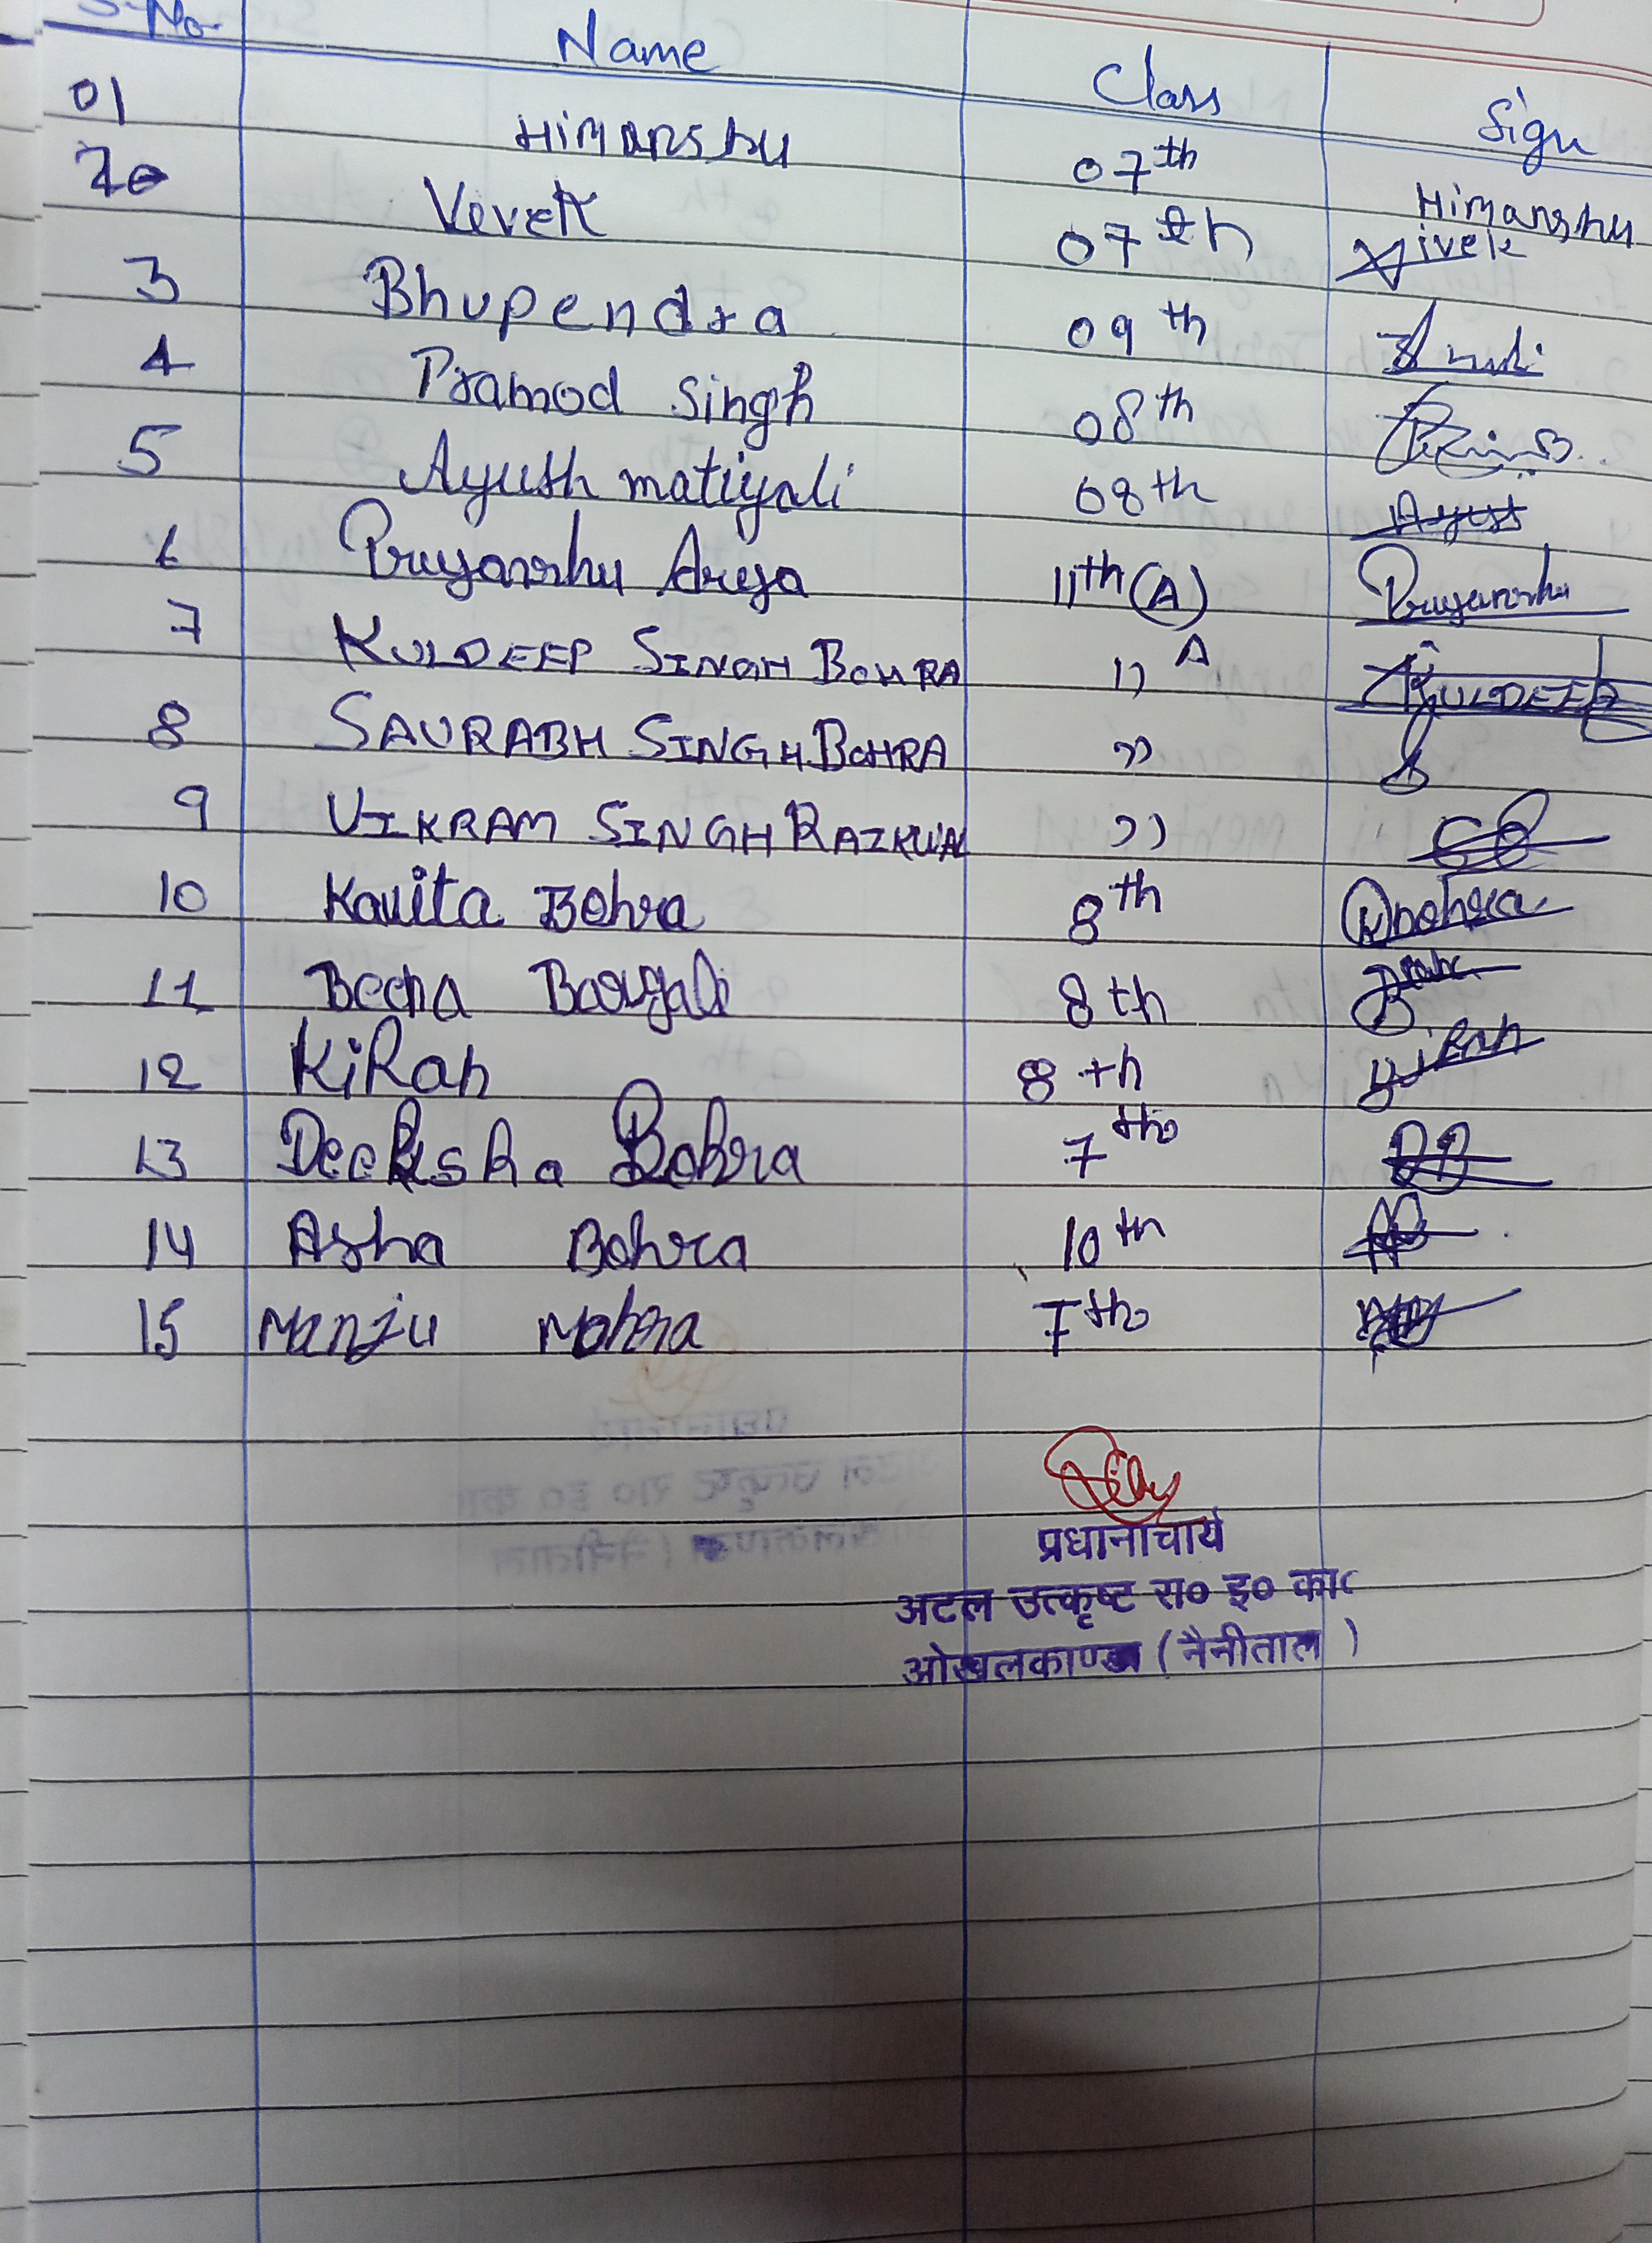 S.No. Name Class Sign
01 HIMANSHU 07th Himanshu
2 Vivek 07th Vivek
3 Bhupendra 09th
4 Pramod Singh 08th
5 Ayush matiyali 08th Ayush
6 Priyanshu Arya 11th (A) Priyanshu
7 KULDEEP SINGH BOHRA 11 A KULDEEP
8 SAURABH SINGH BOHRA "
9 VIKRAM SINGH RAIKWAL "
10 Kavita Bohra 8th KBohra
11 Beena Bargali 8th
12 KiRan 8th Kiran
13 Deeksha Bohra 7th
14 Asha Bohra 10th
15 Manju Mohra 7th
प्रधानाचार्य
अटल उत्कृष्ट रा० इ० का०
ओखलकाण्डा (नैनीताल)